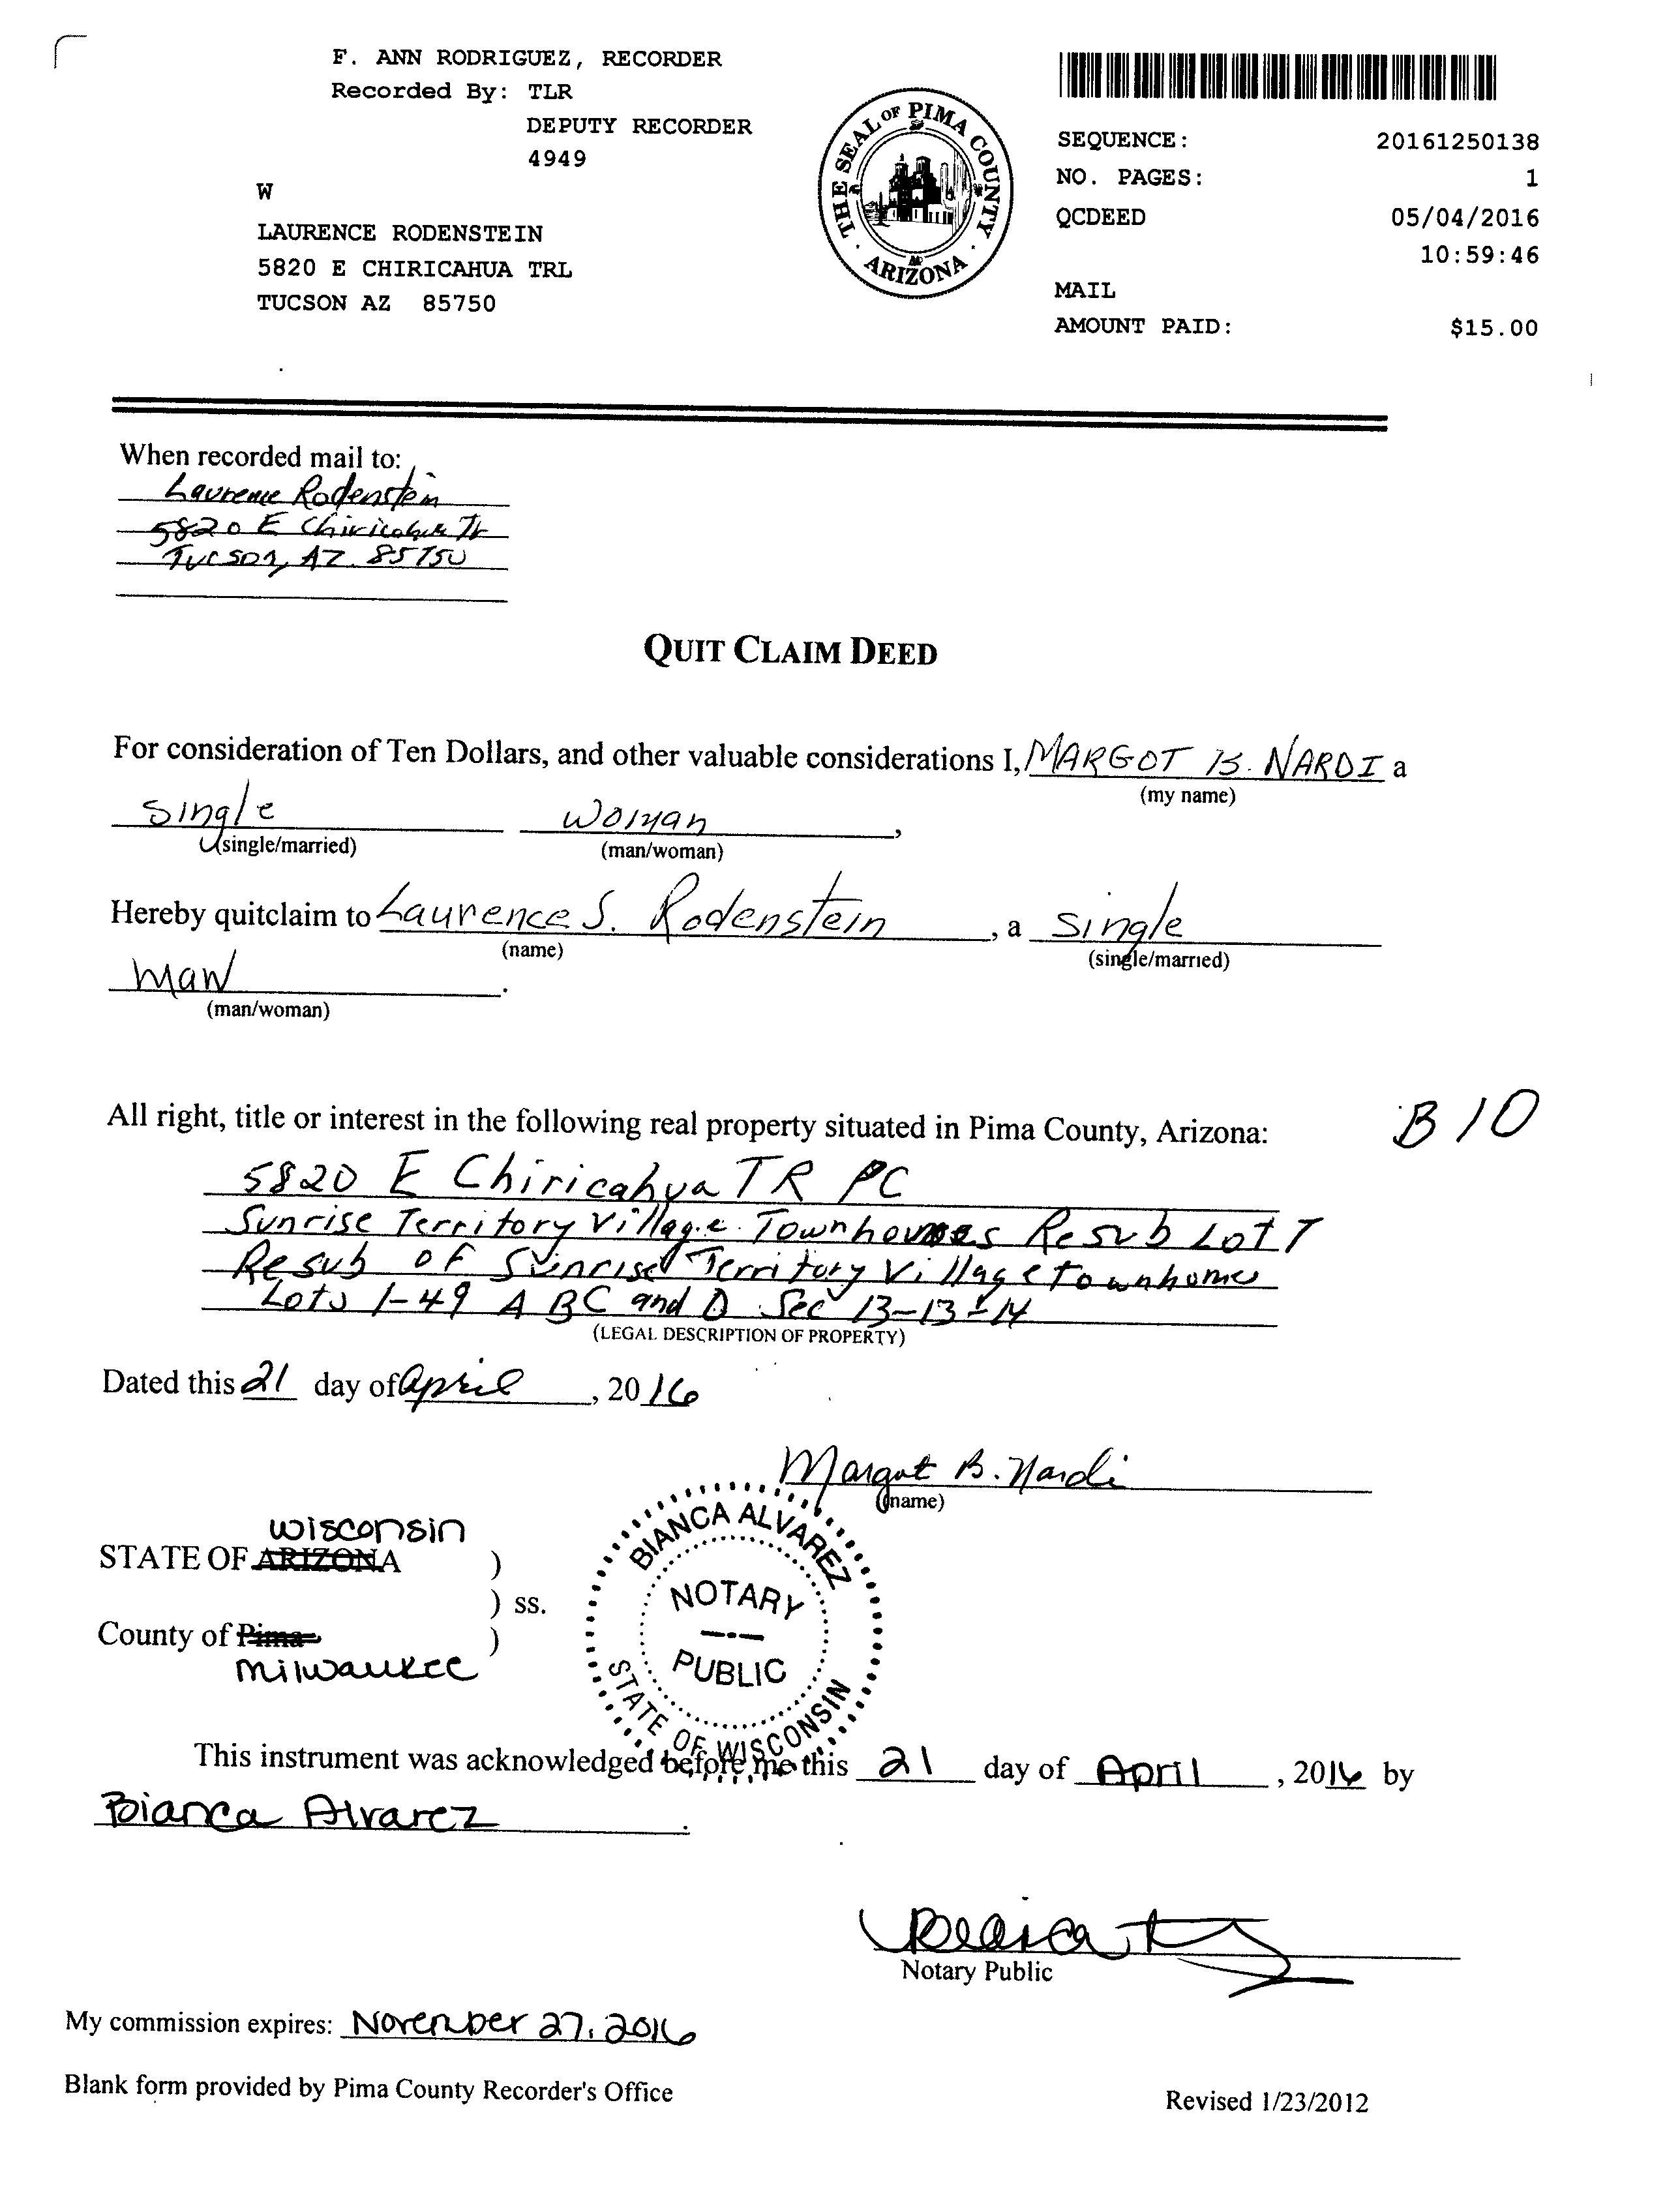 F. ANN RODRIGUEZ, RECORDER
Recorded By: TLR
DEPUTY RECORDER
4949
W
LAURENCE RODENSTEIN
5820 E CHIRICAHUA TRL
TUCSON AZ 85750
THE SEAL OF PIMA COUNTY
ARIZONA
SEQUENCE: 20161250138
NO. PAGES: 1
QCDEED 05/04/2016
10:59:46
MAIL
AMOUNT PAID: $15.00
When recorded mail to:
Laurence Rodenstein
5820 E Chiricahua Tr
Tucson, AZ. 85750
QUIT CLAIM DEED
For consideration of Ten Dollars, and other valuable considerations I, MARGOT B. NARDI a
(my name)
single woman,
(single/married) (man/woman)
Hereby quitclaim to Laurence S. Rodenstein, a single
(name) (single/married)
man.
(man/woman)
All right, title or interest in the following real property situated in Pima County, Arizona: B10
5820 E Chiricahua TR PC
Sunrise Territory Village Townhomes Resub Lot 7
Resub of Sunrise Territory Village townhome
Lots 1-49 A BC and D Sec 13-13-14
(LEGAL DESCRIPTION OF PROPERTY)
Dated this 21 day of April, 2016
Margot B. Nardi
(name)
wisconsin
STATE OF ARIZONA )
) ss.
County of Pima )
milwaukee
BIANCA ALVAREZ
NOTARY
PUBLIC
STATE OF WISCONSIN
This instrument was acknowledged before me this 21 day of April, 2016 by
Bianca Alvarez.
Notary Public
My commission expires: November 27, 2016
Blank form provided by Pima County Recorder's Office Revised 1/23/2012